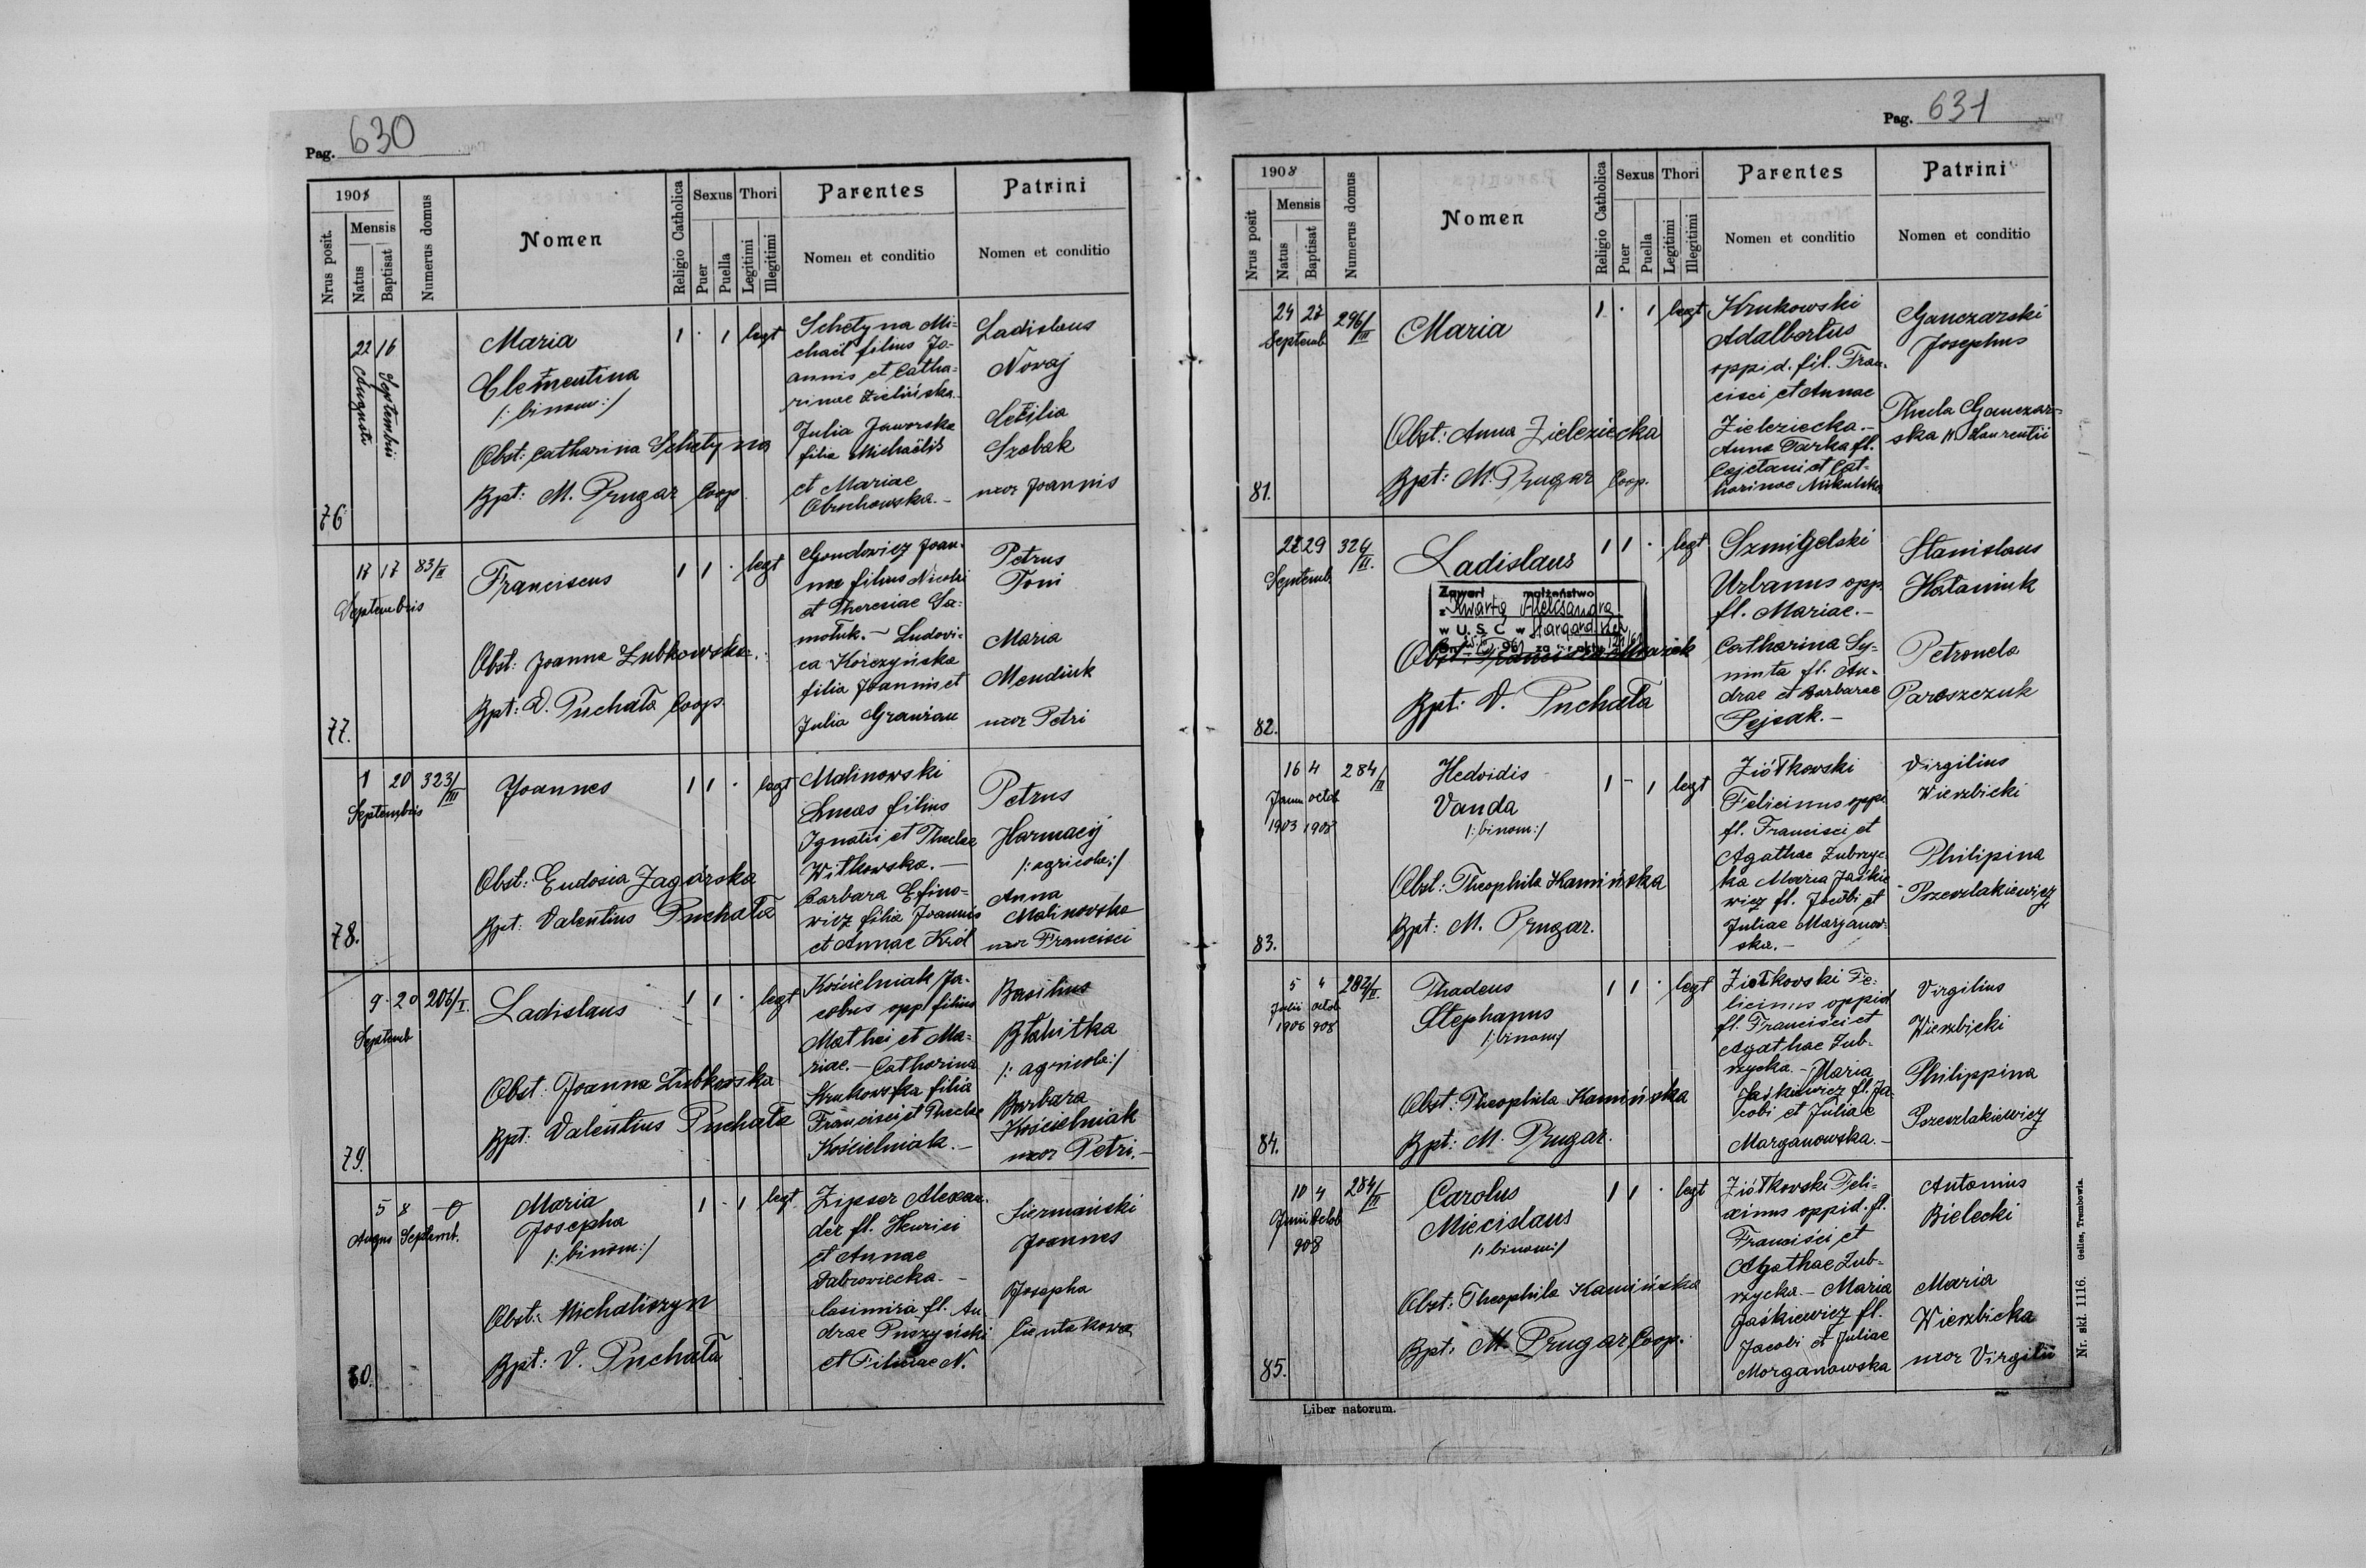 Pag. 630
1908
Nrus posit.
Mensis
Natus
Baptisat
Numerus domus
Nomen
Religio Catholica
Sexus
Puer
Puella
Thori
Legitimi
Illegitimi
Parentes
Nomen et conditio
Patrini
Nomen et conditio
76
22 16
Augusti
Septembris
Maria
Clementina
/: binom :/
Obst: Catharina Schetyna
Bpt: M. Prugar Coop.
1 · 1 legt
Schetyna Mi=
chaël filius Jo=
annis et Catha=
rinae Zielińska.
Julia Jaworska
filia Michaëlis
et Mariae
Obuchowska.-
Ladislaus
Novaj
Szobak
uxor Joannis
77.
17 17 83/II
Septembris
Franciscus
Obst: Joanna Zubkowska
Bpt: V. Puchała Coop.
1 1 · legt
Gondowicz Joan=
filius Nicolai
et Theresiae Sa=
motuk. - Ludovi=
ca Korczyńska
filia Joannis et
Julia
Petrus
Toni
Maria
Mendiuk
uxor Petri
78.
1 20 323/III
Septembris
Joannes
Obst: Eudosia Zagórska
Bpt: Valentius Puchała
1 1 · legt
Malinowski
Lucas filius
Ignatii et Theclae
Witkowska. -
Barbara Efino=
wicz filia Joannis
et Annae Król
Petrus
Harmacij
/: agricola :/
Anna
Malinovska
uxor Francisci
79.
9 · 20 206/I.
Septemb
Ladislaus
Obst: Joanna Zubkowska
Bpt: Valentius Puchała
1 1 · legt
Kościelniak Ja=
cobus opp filius
Mathei et Ma=
riae. - Catharina
Krukowska filia
Francisci et Theclae
Kościelniak. -
Basilius
Błahitka
/: agricola :/
Barbara
Kościelniak
uxor Petri. -
80.
5 8
Augus Septemb.
Maria
Josepha
/: binom :/
Obst: Michaliszyn
Bpt: V. Puchała
1 · 1 legt
Zipser Alexan=
der fl. Henrici
et Annae
Dabrowiecka. -
Casimira fl. An=
drae Puszyński
et Filiciae N.
Siermański
Joannes
Josepha
Cientakowa
Pag. 631
1908
Nrus posit
Mensis
Natus
Baptisat
Numerus domus
Nomen
Religio Catholica
Sexus
Puer
Puella
Thori
Legitimi
Illegitimi
Parentes
Nomen et conditio
Patrini
Nomen et conditio
81.
24 27 296/III
Septemb
Maria
Obst: Anna Zieleziecka
Bpt: M. Prugar Coop.
1 · 1 legt
Krukowski
Adalbertus
oppid. fil. Fran=
cisci et Annae
Zieleziecka. -
Anna Tarka fl.
Cajetani et Cat=
harinae Mikulska
Ganczarski
Josephus
Thecla Ganczar=
ska Laurentii
82.
22 29 324/II.
Septemb
Ladislaus
Zawarł małżeństwo
z Kwartą Aleksandrą
w U. S. C. w Stargard
Bpt: V. Puchała
1 1 · legt
Szmigelski
Urbanus opp.
fl. Mariae. -
Catharina Sy=
fl. An=
drae et Barbarae
Pejsak. -
Stanislaus
Hataniuk
Petronela
Paroszczuk
83.
16 4 284/II
Januar octob
1903 1908
Hedvidis
Vanda
/: binom :/
Obst: Theophila Kamińska
Bpt: M. Prugar.
1 - 1 legt
Ziółkowski
Felicinus oppid
fl. Francisci et
Agathae Zubrzyc=
ka Maria Jaśkie
wicz fl. Jacobi et
Juliae Marganow=
ska. -
Virgilius
Wierzbicki
Philipina
Pszeszlakiewicz
84.
5 4 282/II.
Julii octob
1906 908
Thadeus
Stephanus
/: binom :/
Obst: Theophila Kamińska
Bpt: M. Prugar.
1 1 · legt
Ziołkowski Fe=
licinus oppid
fl. Francisci et
Agathae Zub=
rzycka. - Maria
Jaśkiewicz fl. Ja=
cobi et Juliae
Marganowska. -
Virgilius
Wierzbicki
Philippina
Pszeszlakiewicz
85.
10 4 284/II
Junii Octob
908
Carolus
Miecislaus
/: binom :/
Obst: Theophila Kamińska
Bpt: M. Prugar Coop.
1 1 · legt
Ziółkowski Feli=
cinus oppid. fl.
Francisci et
Agathae Zub=
rzycka - Maria
Jaśkiewicz fl.
Jacobi et Juliae
Morganowska
Antonius
Bielecki
Maria
Wierzbicka
uxor Virgilii
Liber natorum.
Nr. skł. 1116. Gelles, Trembowla.